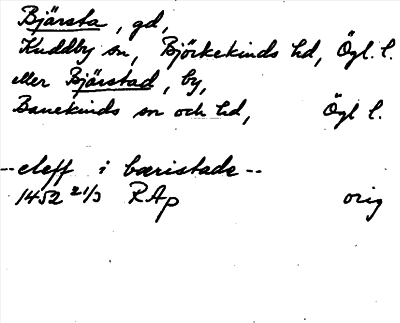 Bjärsta, gd,
Kuddby sn, Björkekinds hd, Ögl. l.
eller Bjärstad, by,
Banekinds sn och hd, Ögl l.
--eleff i bæristade--
1452 21/3 RAp orig